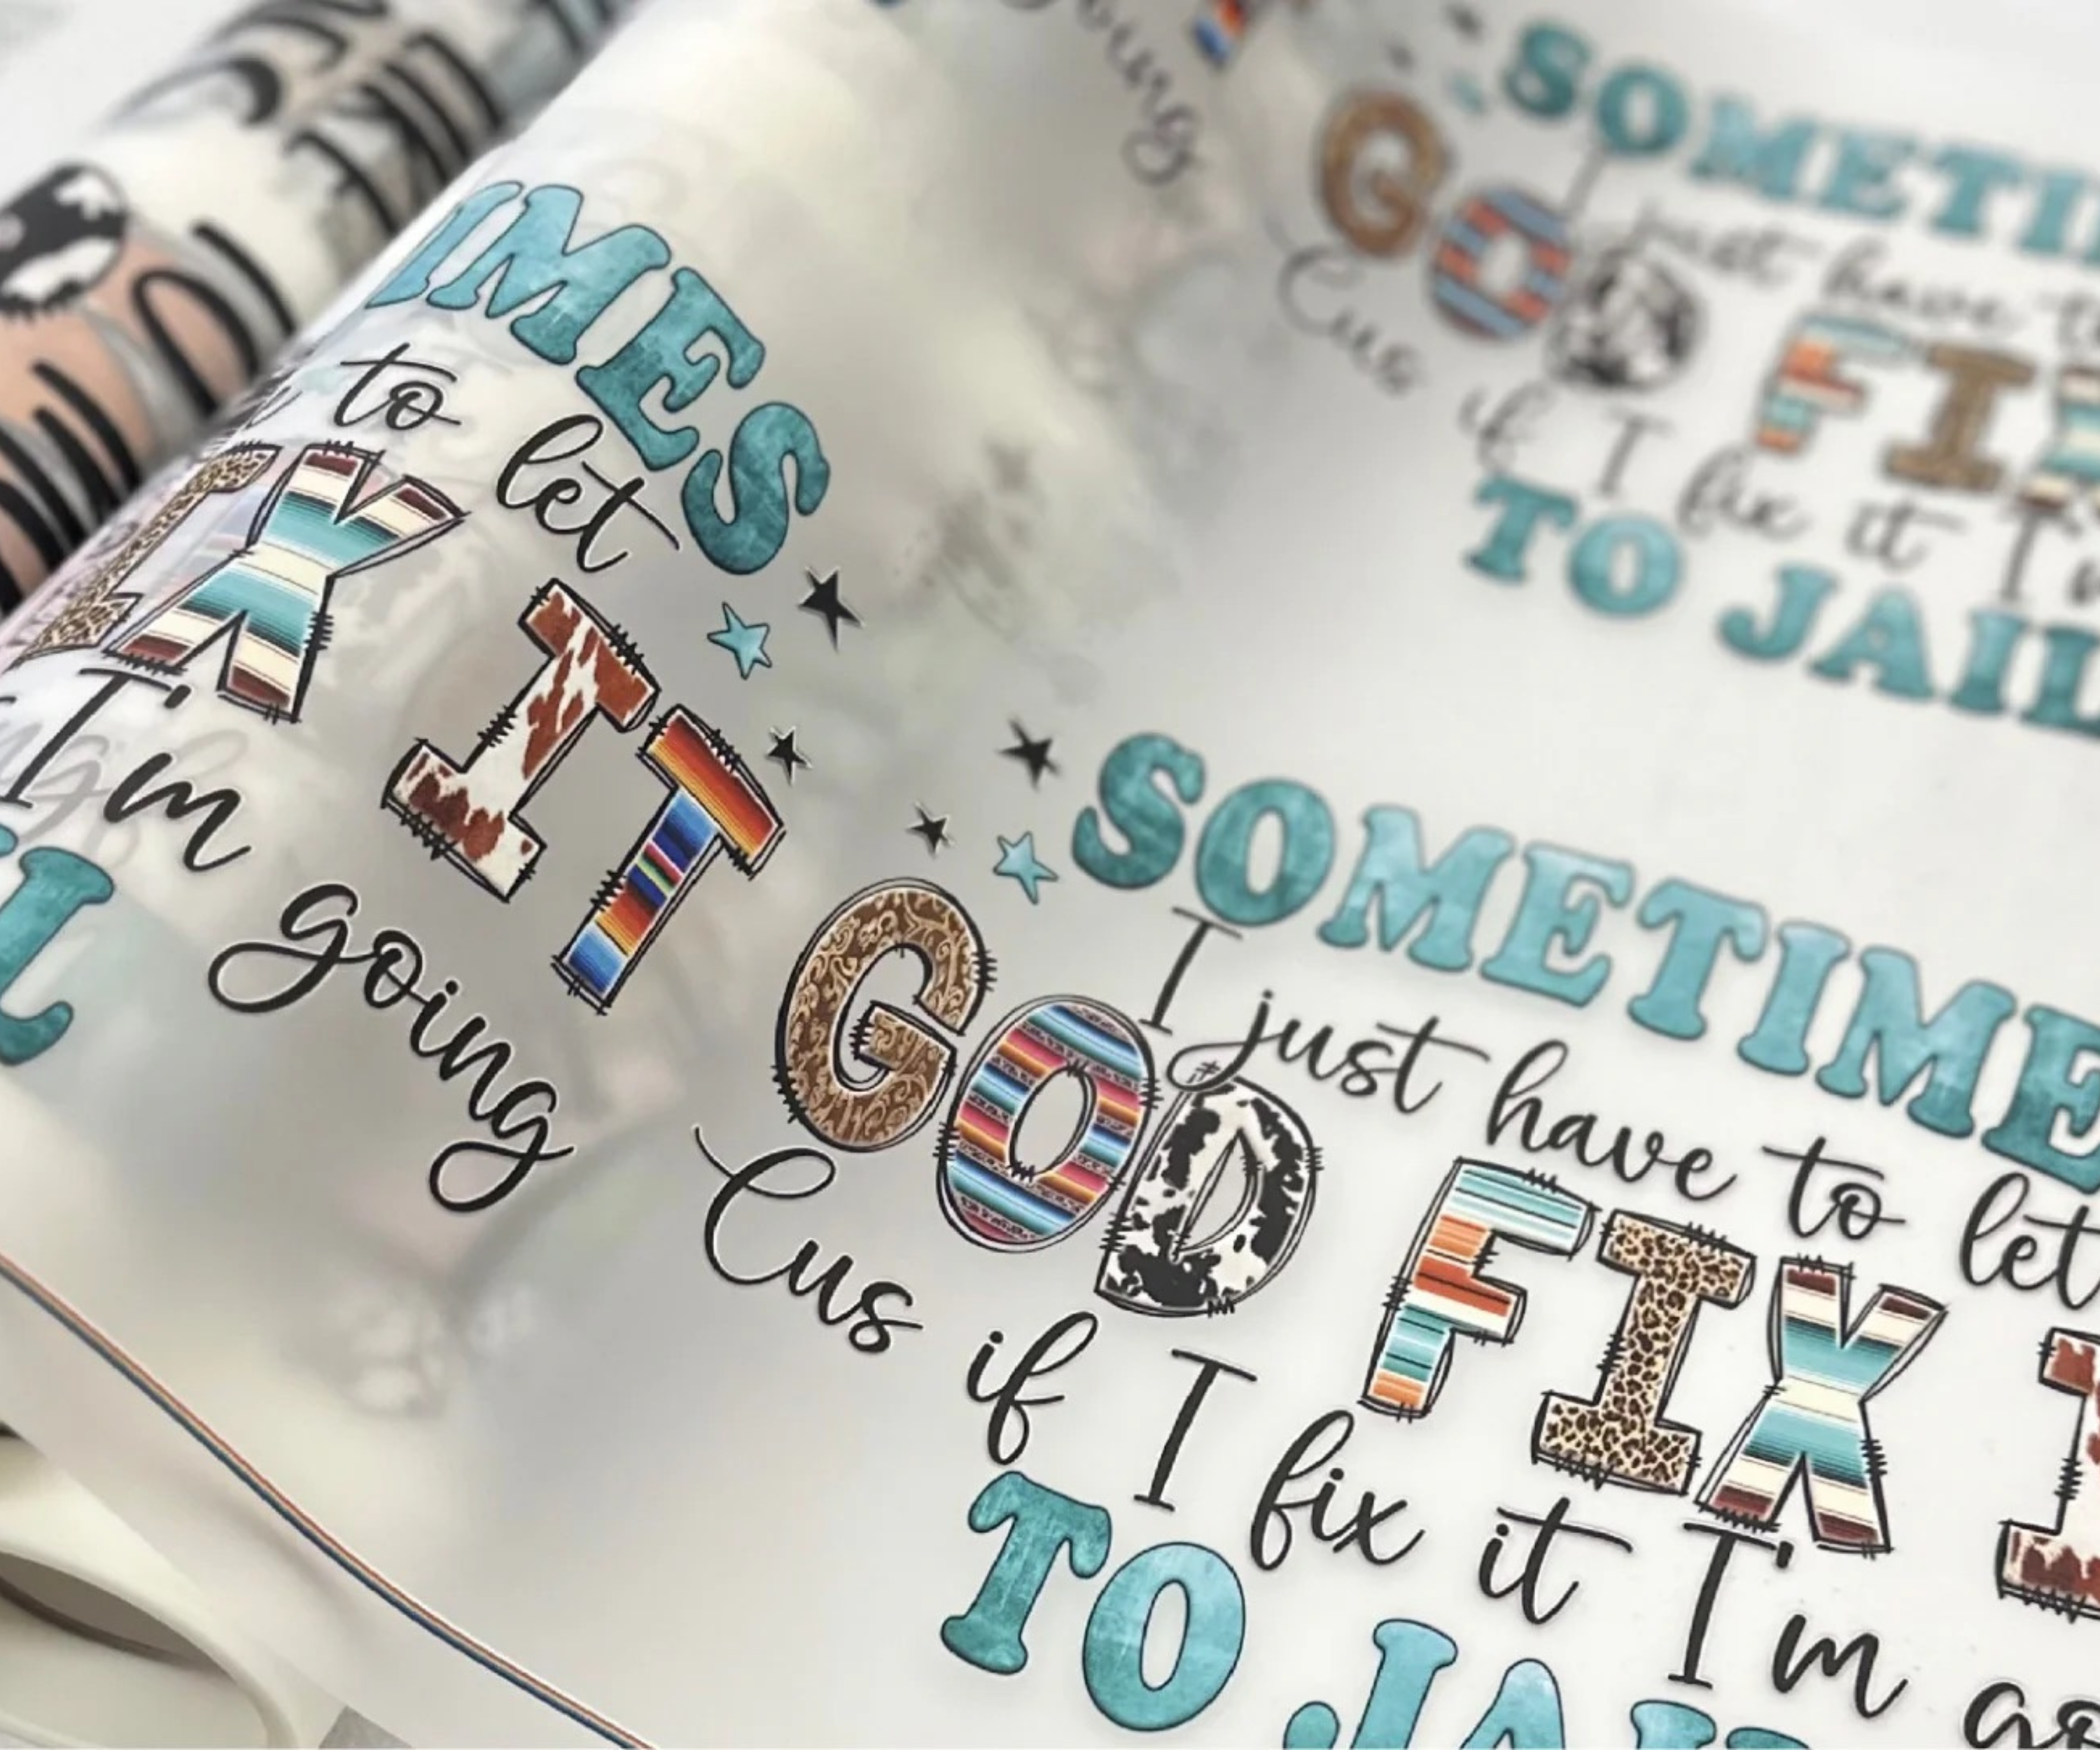 IMES
to let
IX IT
I'm going
L
going
SOMETI
I just have t
GOD FIX
Cus if I fix it I'm
TO JAIL
SOMETIME
I just have to let
GOD FIX I
Cus if I fix it I'm go
TO JAIL